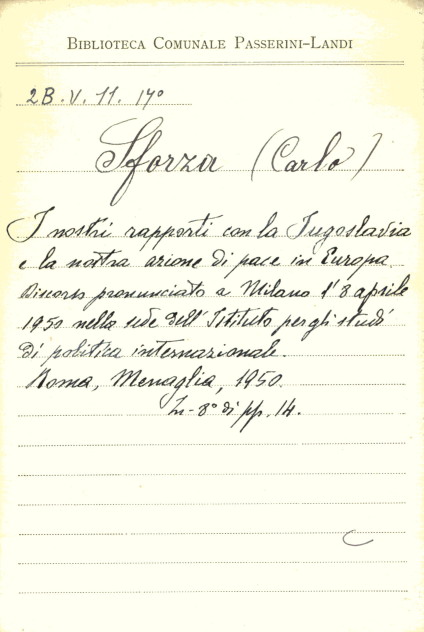 BIBLIOTECA COMUNALE PASSERINI-LANDI
2B.V.11.17°
Sforza (Carlo)
I nostri rapporti con la Jugoslavia
e la nostra azione di pace in Europa.
Discorso pronunciato a Milano l'8 aprile
1950 nella sede dell'Istituto per gli studi
di politica internazionale.
Roma, Menaglia, 1950.
In-8° di pp. 14.
C